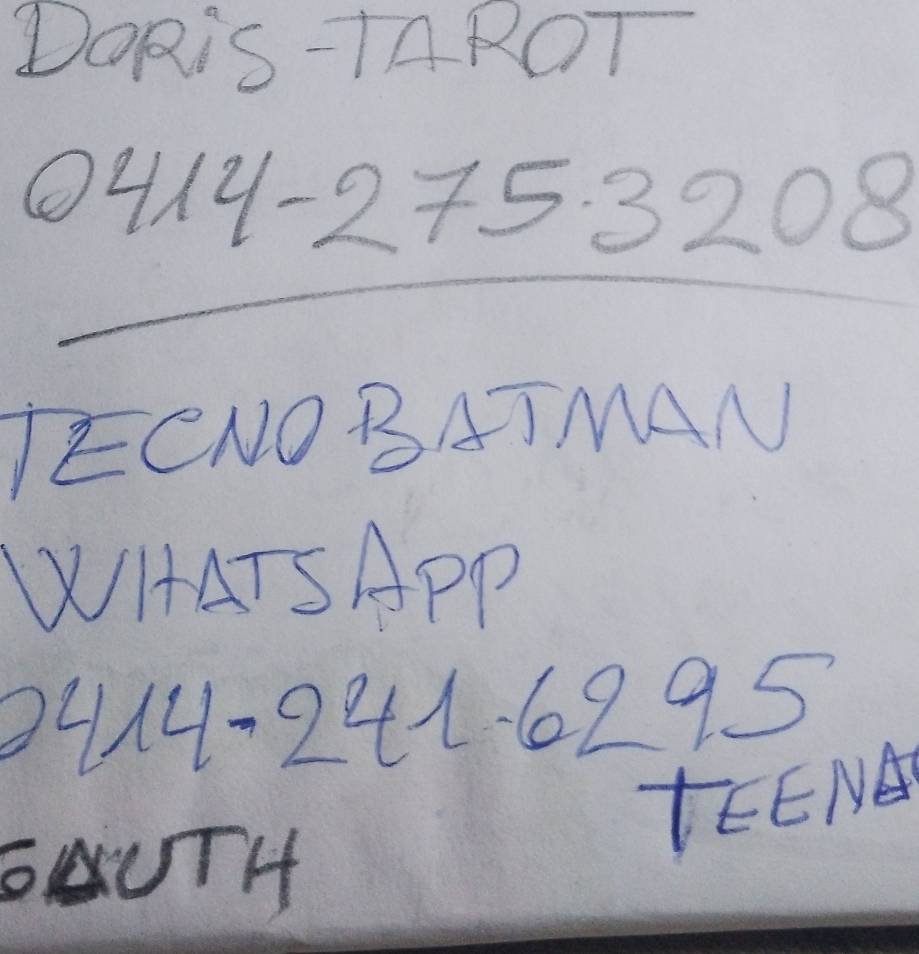 DORiS-TAROT
0414-275.3208
TECNO BATMAN
WHATSAPP
0414-241.6295
TEENA
GAUTH